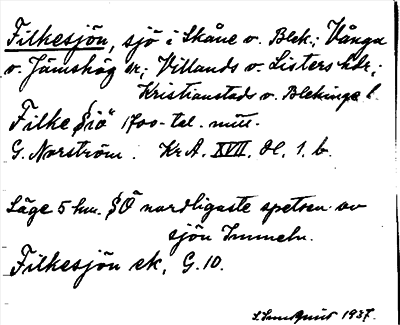 Filkesjön, sjö i Skåne o. Blek.; Vånga
o. Jämshög sr; Villands o. Listers hdr;
Kristianstads o. Blekinge l.
Filke Siö 1700-tel. mitt.
G. Norström. Kr A. XVII. Öl. 1. b.
Läge 5 km. SÖ nordligaste spetsen av
sjön Immeln.
Filkesjön ek, G. 10.
1937.